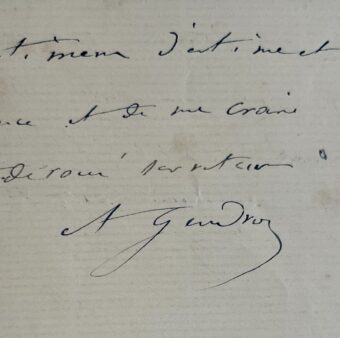 timens d'estime et
nce et de me croire
dévoué serviteur
A Gendron